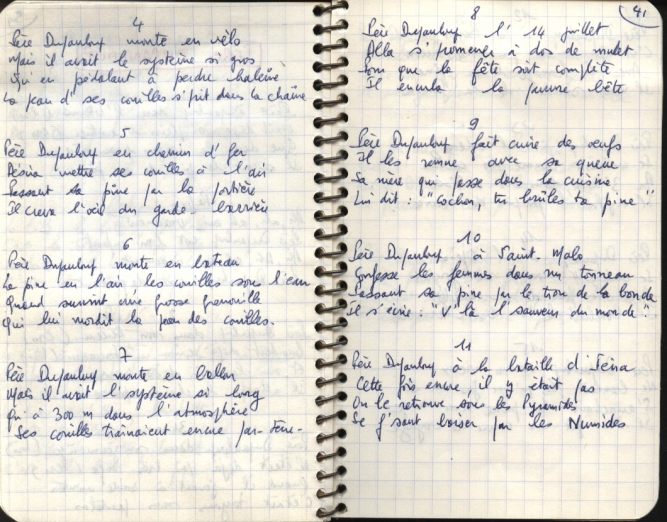 4
Père Dupanloup monte en vélo
Mais il avait le système si gros
Qu'en pédalant à perdre haleine
La peau d' ses couilles s'prit dans la chaîne
5
Père Dupanloup en chemin d' fer
Désira mettre ses couilles à l'air
Passant sa pine par la portière
Il creva l'oeil du garde-barrière
6
Père Dupanloup monte en bateau
La pine en l'air, les couilles sous l'eau
Quand survint une grosse grenouille
Qui lui mordit la peau des couilles.
7
Père Dupanloup monte en ballon
Mais il avait l'système si long
Qu'à 300 m dans l'atmosphère
Ses couilles traînaient encore par-terre-
41
8
Père Dupanloup l' 14 juillet
Alla s'promener à dos de mulet
Pour que la fête soit complète
Il encula la pauvre bête
9
Père Dupanloup fait cuire des oeufs
Il les remue avec sa queue
Sa mère qui passe dans la cuisine
Lui dit : "Cochon, tu brûles ta pine"
10
Père Dupanloup à Saint-Malo
Confesse les femmes dans un tonneau
Passant sa pine par le trou de la bonde
Il s'écrie : "V'là l'sauveur du monde"
11
Père Dupanloup à la bataille d'Iéna
Cette fois encore, il y était pas
On le retrouve sous les Pyramides
Se f'sant baiser par les Numides